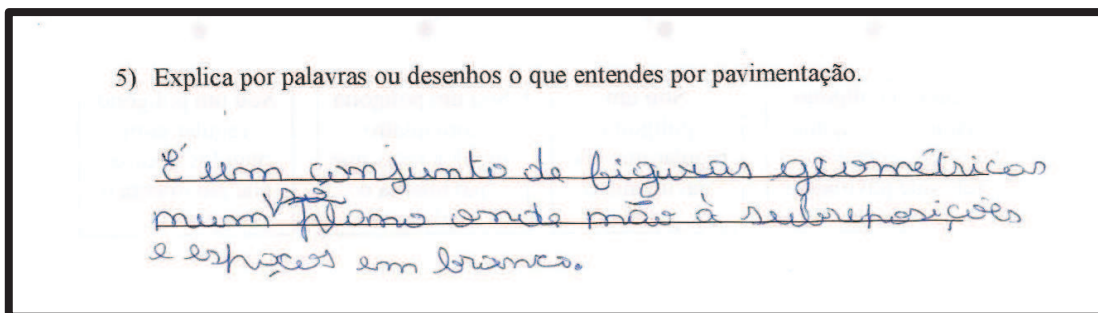 5) Explica por palavras ou desenhos o que entendes por pavimentação.
É um conjunto de figuras geométricas
num só plano onde não à subreposições
e espaços em branco.